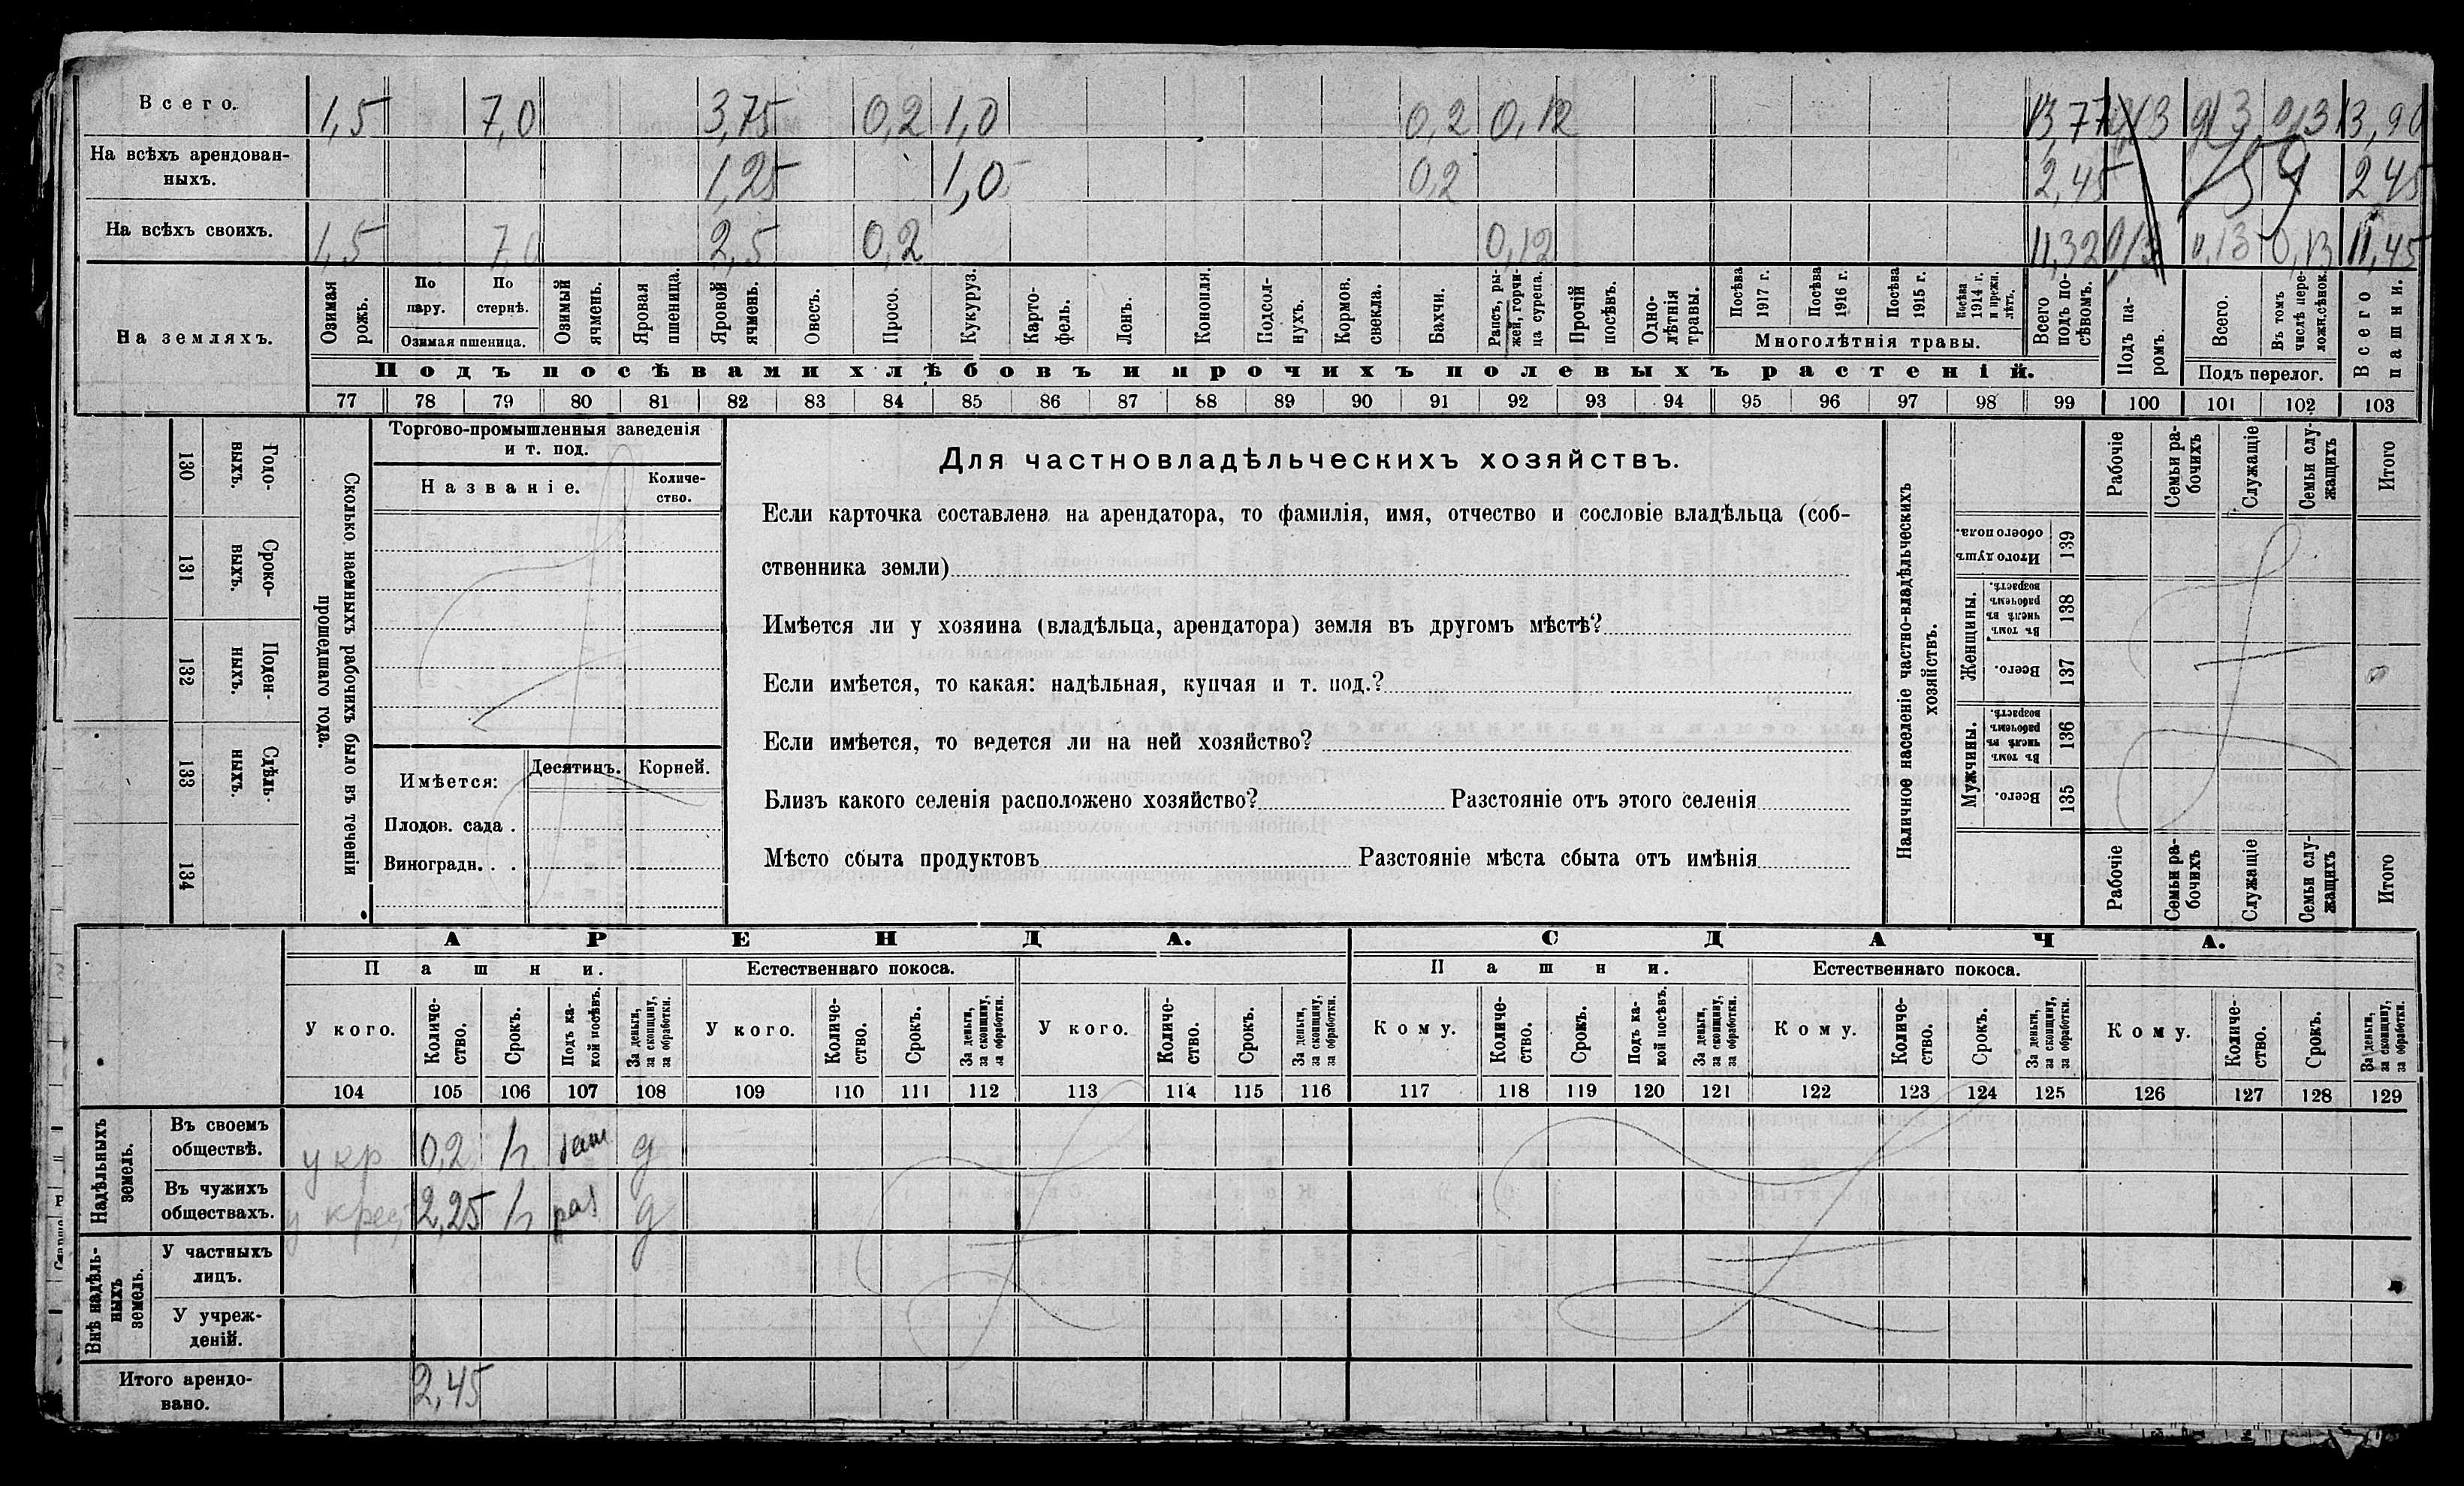 Всего. 1,5 7,0 3,75 0,2 1,0 0,2 0,12 13,77 0,13 0,13 13,90
На всѣхъ арендован-
ныхъ. 1,25 1,0 0,2 2,45 2,45
На всѣхъ своихъ. 1,5 7,0 2,5 0,2 0,12 11,32 0,13 0,13 11,45
На земляхъ.
Озимая рожь.
По пару.
По стернѣ.
Озимая пшеница.
Озимый ячмень.
Яровая пшеница.
Яровой ячмень.
Овесъ.
Просо.
Кукуруз.
Карто-
фель.
Ленъ.
Конопля.
Подсол-
нухъ.
Кормов. свекла.
Бахчи.
Рапсъ, ры-
жей, горчи-
ца сурепа.
Прочій посѣвъ.
Одно-
лѣтнія травы.
Посѣва 1917 г.
Посѣва 1916 г.
Посѣва 1915 г.
Посѣва 1914 г. и прежн. лѣтъ.
Многолѣтнія травы.
Всего подъ по-
сѣвомъ.
Подъ посѣвами хлѣбовъ и прочихъ полевыхъ растеній.
Подъ па-
ромъ.
Всего.
Въ томъ числѣ пере-
ложн.сѣнок.
Подъ перелог.
Всего пашни.
77 78 79 80 81 82 83 84 85 86 87 88 89 90 91 92 93 94 95 96 97 98 99 100 101 102 103
130 Годо-
выхъ.
131 Сроко-
выхъ.
132 Поден-
ныхъ.
133 Сдѣль-
ныхъ.
134
Сколько наемныхъ рабочихъ было въ теченіи
прошедшаго года.
Торгово-промышленныя заведенія
и т. под.
Названіе.
Количе-
ство.
Имѣется: Десятинъ. Корней.
Плодов. сада .
Виноградн. . .
Для частновладѣльческихъ хозяйствъ.
Если карточка составлена на арендатора, то фамилія, имя, отчество и сословіе владѣльца (соб-
ственника земли)
Имѣется ли у хозяина (владѣльца, арендатора) земля въ другомъ мѣстѣ?
Если имѣется, то какая: надѣльная, купчая и т. под.?
Если имѣется, то ведется ли на ней хозяйство?
Близъ какого селенія расположено хозяйство? Разстояніе отъ этого селенія
Мѣсто сбыта продуктовъ Разстояніе мѣста сбыта отъ имѣнія
Наличное населеніе частно-владѣльческихъ
хозяйствъ.
Рабочіе
Семьи ра-
бочихъ
Служащіе
Семьи слу-
жащихъ
Итого
Итого душъ обоего пола. 139
Женщины.
Въ томъ числѣ въ рабочемъ возрастѣ. 138
Всего. 137
Мужчины.
Въ томъ числѣ въ рабочемъ возрастѣ. 136
Всего. 135
Рабочіе
Семьи ра-
бочихъ
Служащіе
Семьи слу-
жащихъ
Итого
АРЕНДА. СДАЧА.
Пашни. Естественнаго покоса. Пашни. Естественнаго покоса.
У кого.
Количе-
ство.
Срокъ.
Подъ ка-
кой посѣвъ.
За деньги, за скопщину, за обработки.
У кого.
Количе-
ство.
Срокъ.
За деньги, за скопщину, за обработки.
У кого.
Количе-
ство.
Срокъ.
За деньги, за скопщину, за обработки.
Кому.
Количе-
ство.
Срокъ.
Подъ ка-
кой посѣвъ.
За деньги, за скопщину, за обработки.
Кому.
Количе-
ство.
Срокъ.
За деньги, за скопщину, за обработки.
Кому.
Количе-
ство.
Срокъ.
За деньги, за скопщину, за обработки.
104 105 106 107 108 109 110 111 112 113 114 115 116 117 118 119 120 121 122 123 124 125 126 127 128 129
Надѣльныхъ
земель.
Въ своемъ
обществѣ. у кр 0,2 д
Въ чужихъ
обществахъ. у крес 2,25 д
Внѣ надѣль-
ныхъ
земель.
У частныхъ
лицъ.
У учреж-
деній.
Итого арендо-
вано. 2,45